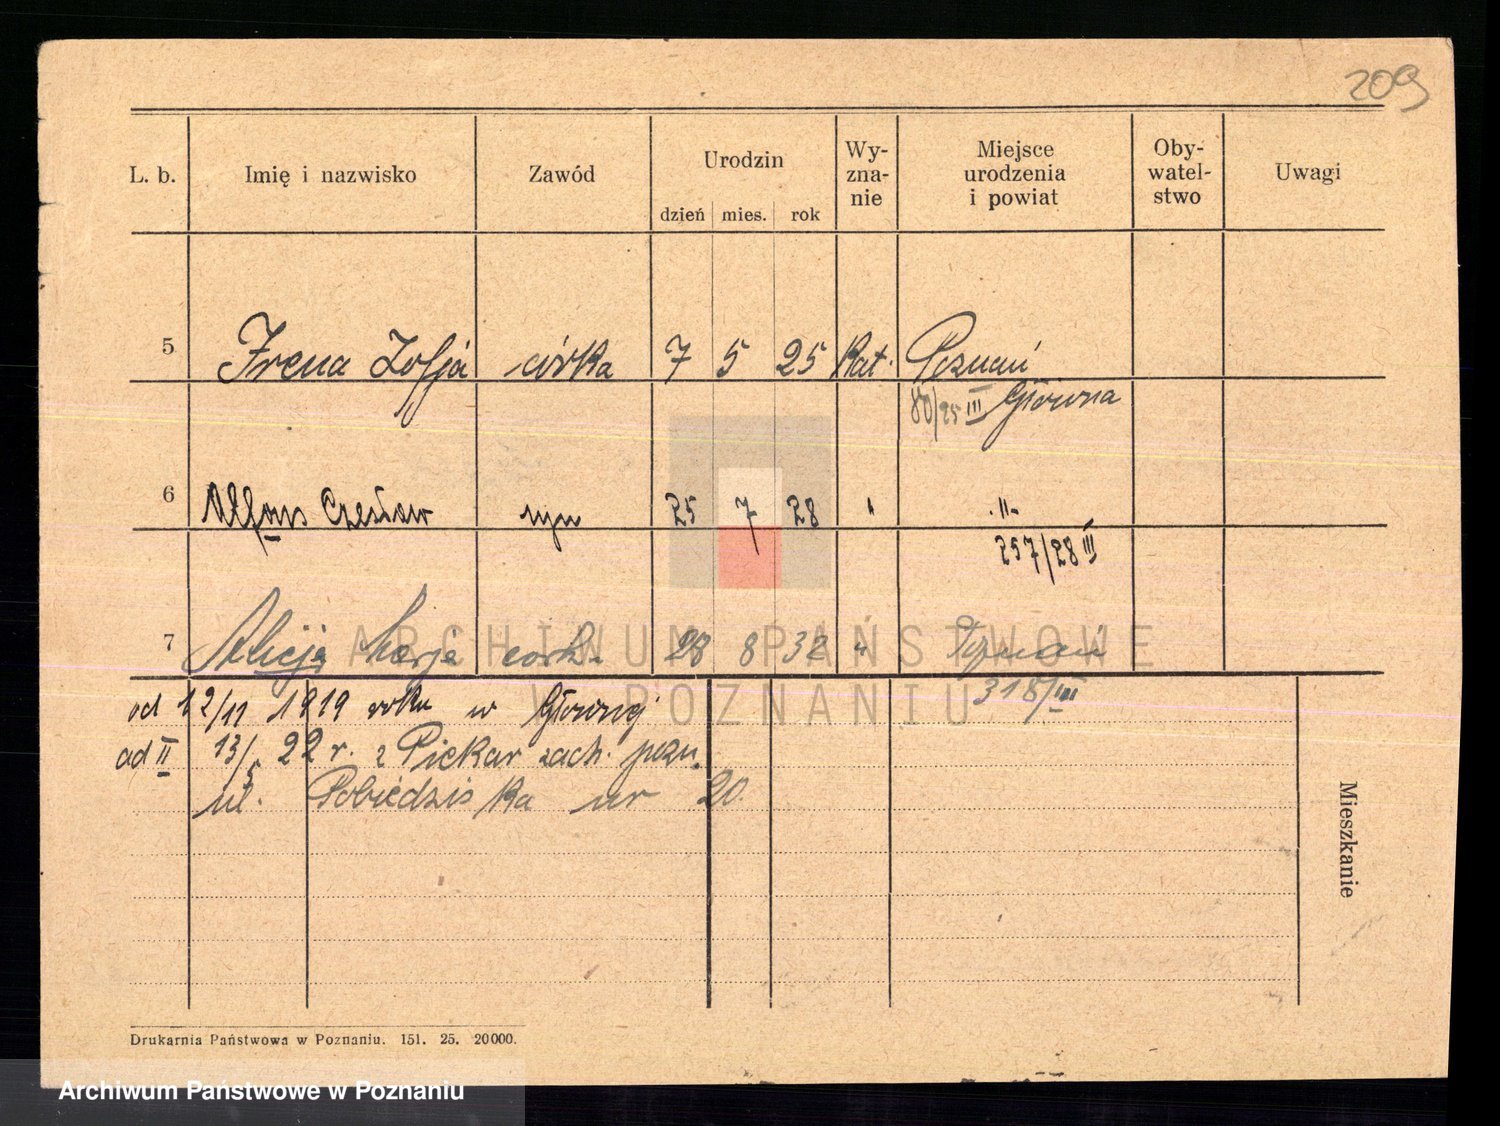 209
L. b. Imię i nazwisko Zawód Urodzin Wy-zna-nie Miejsce urodzenia i powiat Oby-watel-stwo Uwagi
dzień mies. rok
5 Irena Zofja córka 7 5 25 Kat. Poznań
80/25 III Główna
6 Alfons Czesław syn 25 7 28 " -"-
257/28 III
7 Alicja Marja córk. 28 8 32 " Poznań
318/III
od 12/11 1919 roku w Głównej
ad II 13/5 22 r. z Piekar zach. pozn.
ul. Pobiedziska nr 20.
Mieszkanie
Drukarnia Państwowa w Poznaniu. 151. 25. 20000.
ARCHIWUM PAŃSTWOWE
W POZNANIU
Archiwum Państwowe w Poznaniu